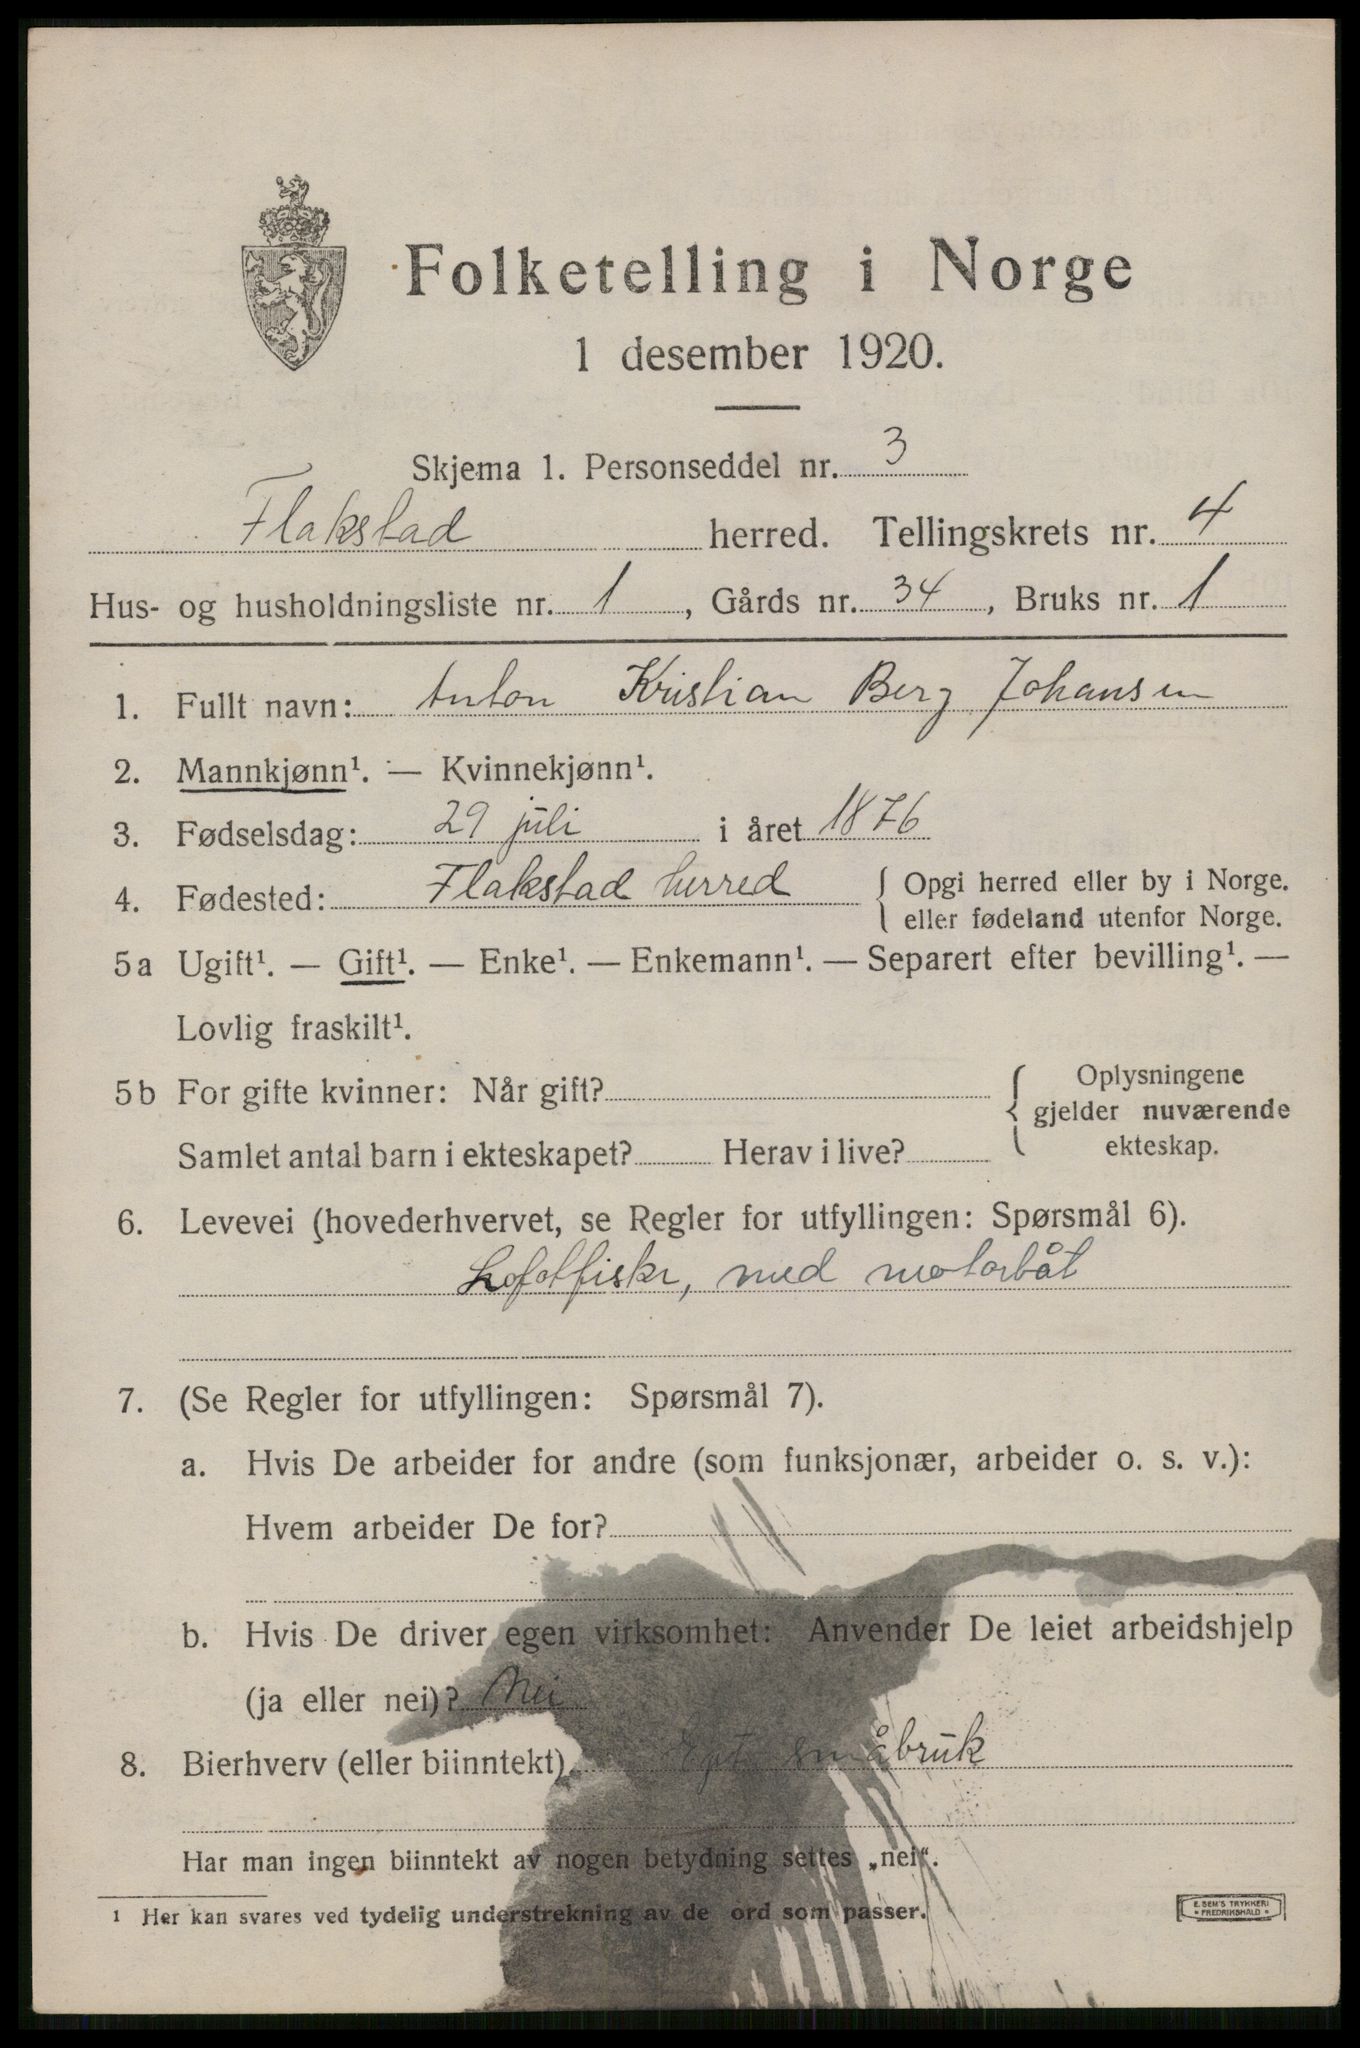 Folketelling i Norge
1 desember 1920.
Skjema 1. Personseddel nr. 3
Flakstad herred. Tellingskrets nr. 4
Hus- og husholdningsliste nr. 1, Gårds nr. 34, Bruks nr. 1
1. Fullt navn: Anton Kristian Berg Johansen
2. Mannkjønn¹. — Kvinnekjønn¹.
3. Fødselsdag: 29 juli i året 1876
4. Fødested: Flakstad herred { Opgi herred eller by i Norge.
eller fødeland utenfor Norge.
5a Ugift¹. — Gift¹. — Enke¹. — Enkemann¹. — Separert efter bevilling¹. —
Lovlig fraskilt¹.
5b For gifte kvinner: Når gift? { Oplysningene
gjelder nuværende
ekteskap.
Samlet antal barn i ekteskapet? Herav i live?
6. Levevei (hovederhvervet, se Regler for utfyllingen: Spørsmål 6).
Lofotfisker, med motorbåt
7. (Se Regler for utfyllingen: Spørsmål 7).
a. Hvis De arbeider for andre (som funksjonær, arbeider o. s. v.):
Hvem arbeider De for?
b. Hvis De driver egen virksomhet: Anvender De leiet arbeidshjelp
(ja eller nei)? Nei
8. Bierhverv (eller biinntekt) småbruk
Har man ingen biinntekt av nogen betydning settes „nei“.
¹ Her kan svares ved tydelig understrekning av de ord som passer.
E. SEM'S TRYKKERI
* FREDRIKSHALD *